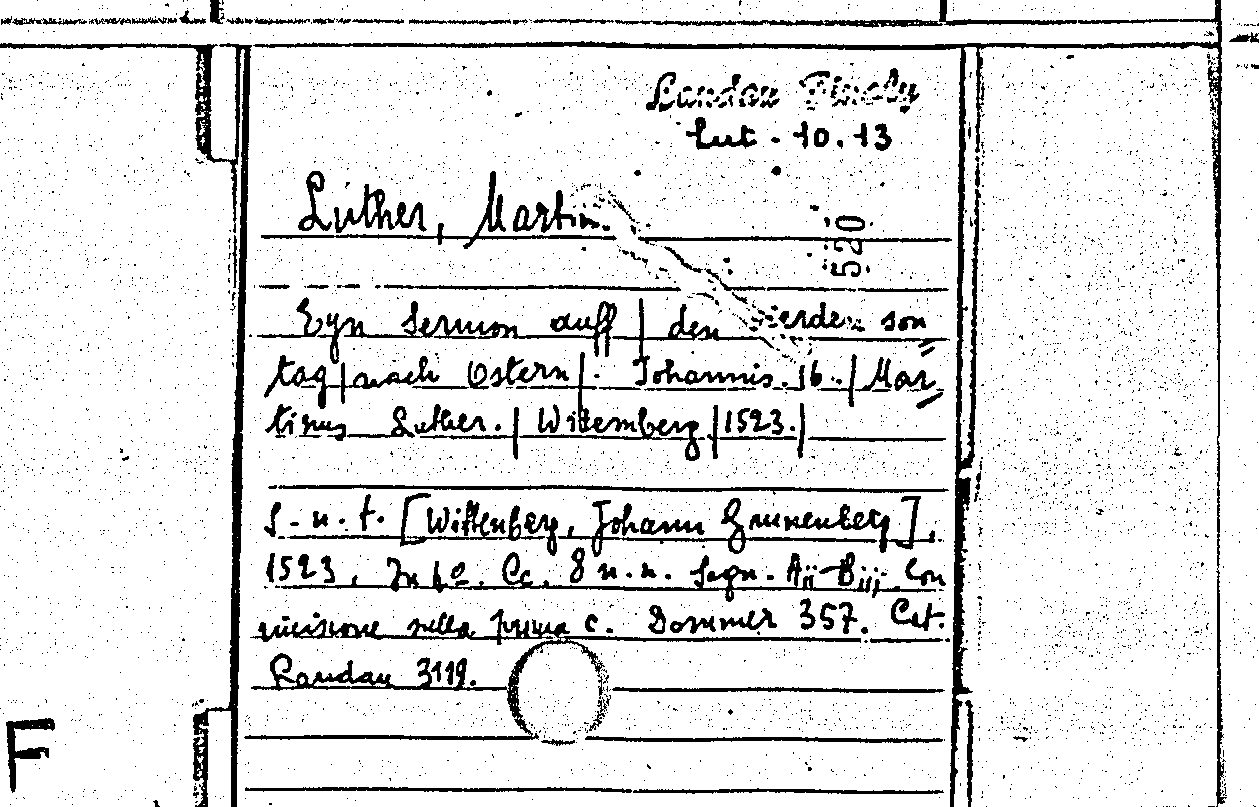 Landau Finaly
Lut. 10.13
Luther, Martin.
520
Eyn Sermon auff | den vierden son
tag | nach Ostern |. Johannis. 16. | Mar
tinus Luther. | Wittemberg | 1523. |
S. n. t. [Wittenberg, Johann Grunenberg],
1523. In 4º. Cc. 8 n. n. Segn. Aii-Biij. Con
incisione nella prima c. Dommer 357. Cat.
Landau 3119.
F